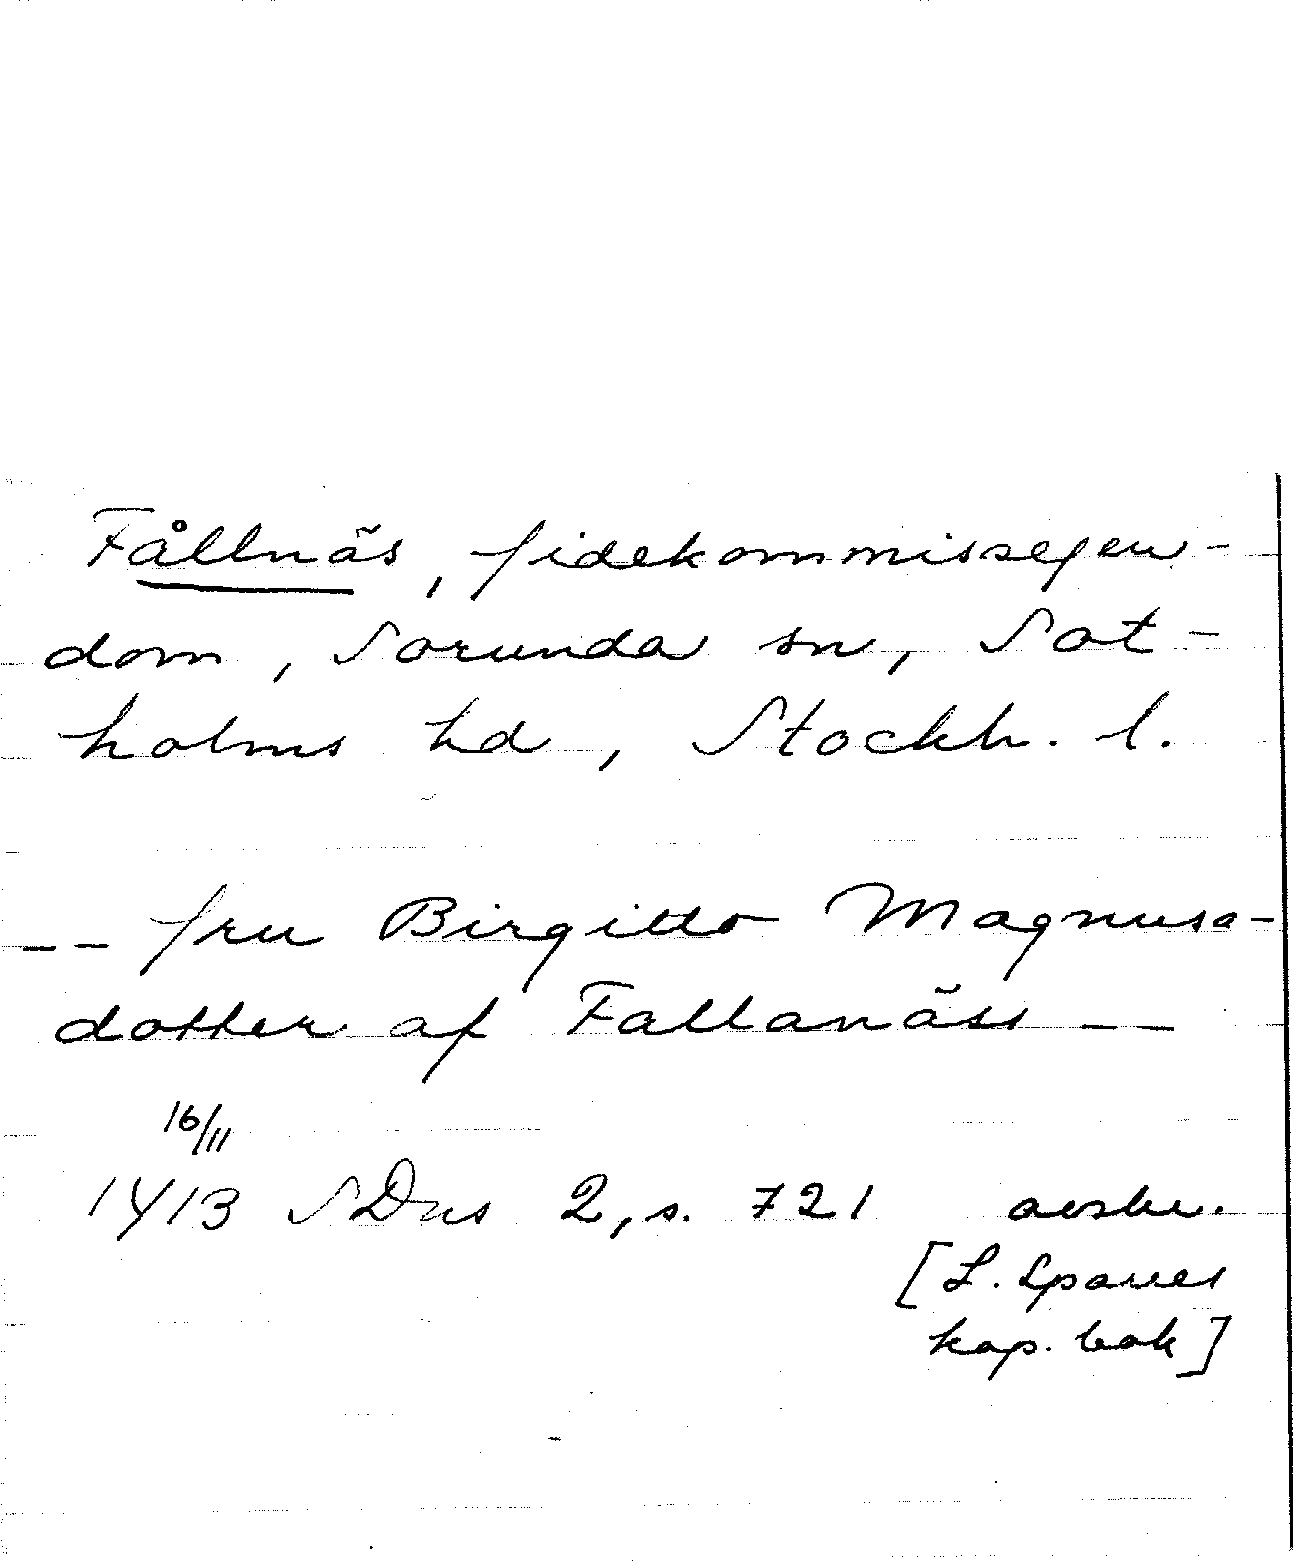 Fållnäs, fidekommissegen-
dom, Sorunda sn, Sot-
holms hd, Stockh. l.
-- fru Birgitta Magnusa-
dotter af Fallanäss --
16/11
1413 SDns 2, s. 721 avskr.
[L. Sparres
kop. bok]